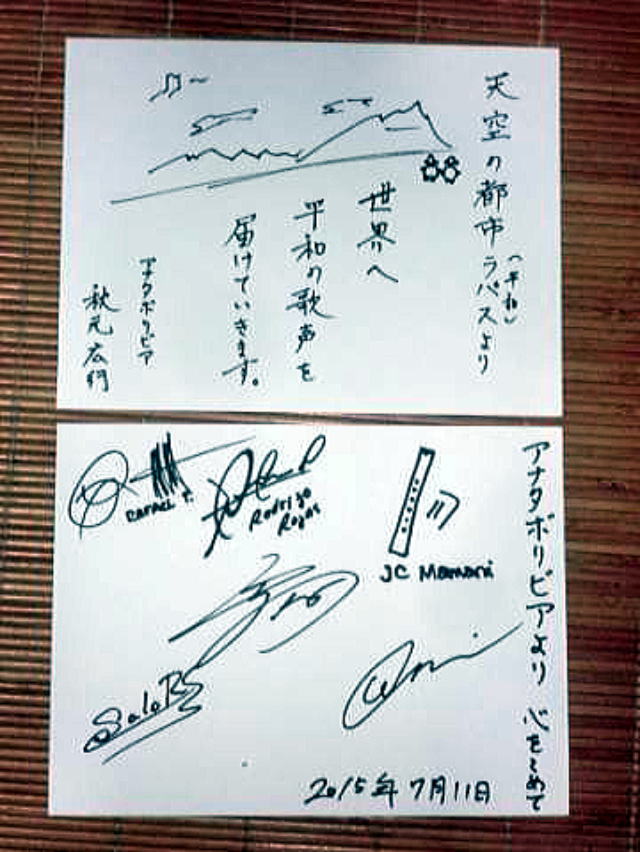 天空の都市ラパスより
(平和)
世界へ
平和の歌声を
届けていきます。
アナタボリビア
秋元広行
アナタボリビアより 心をこめて
Rafael F.
Rodrigo
Rojas
JC Mamani
2015年7月11日